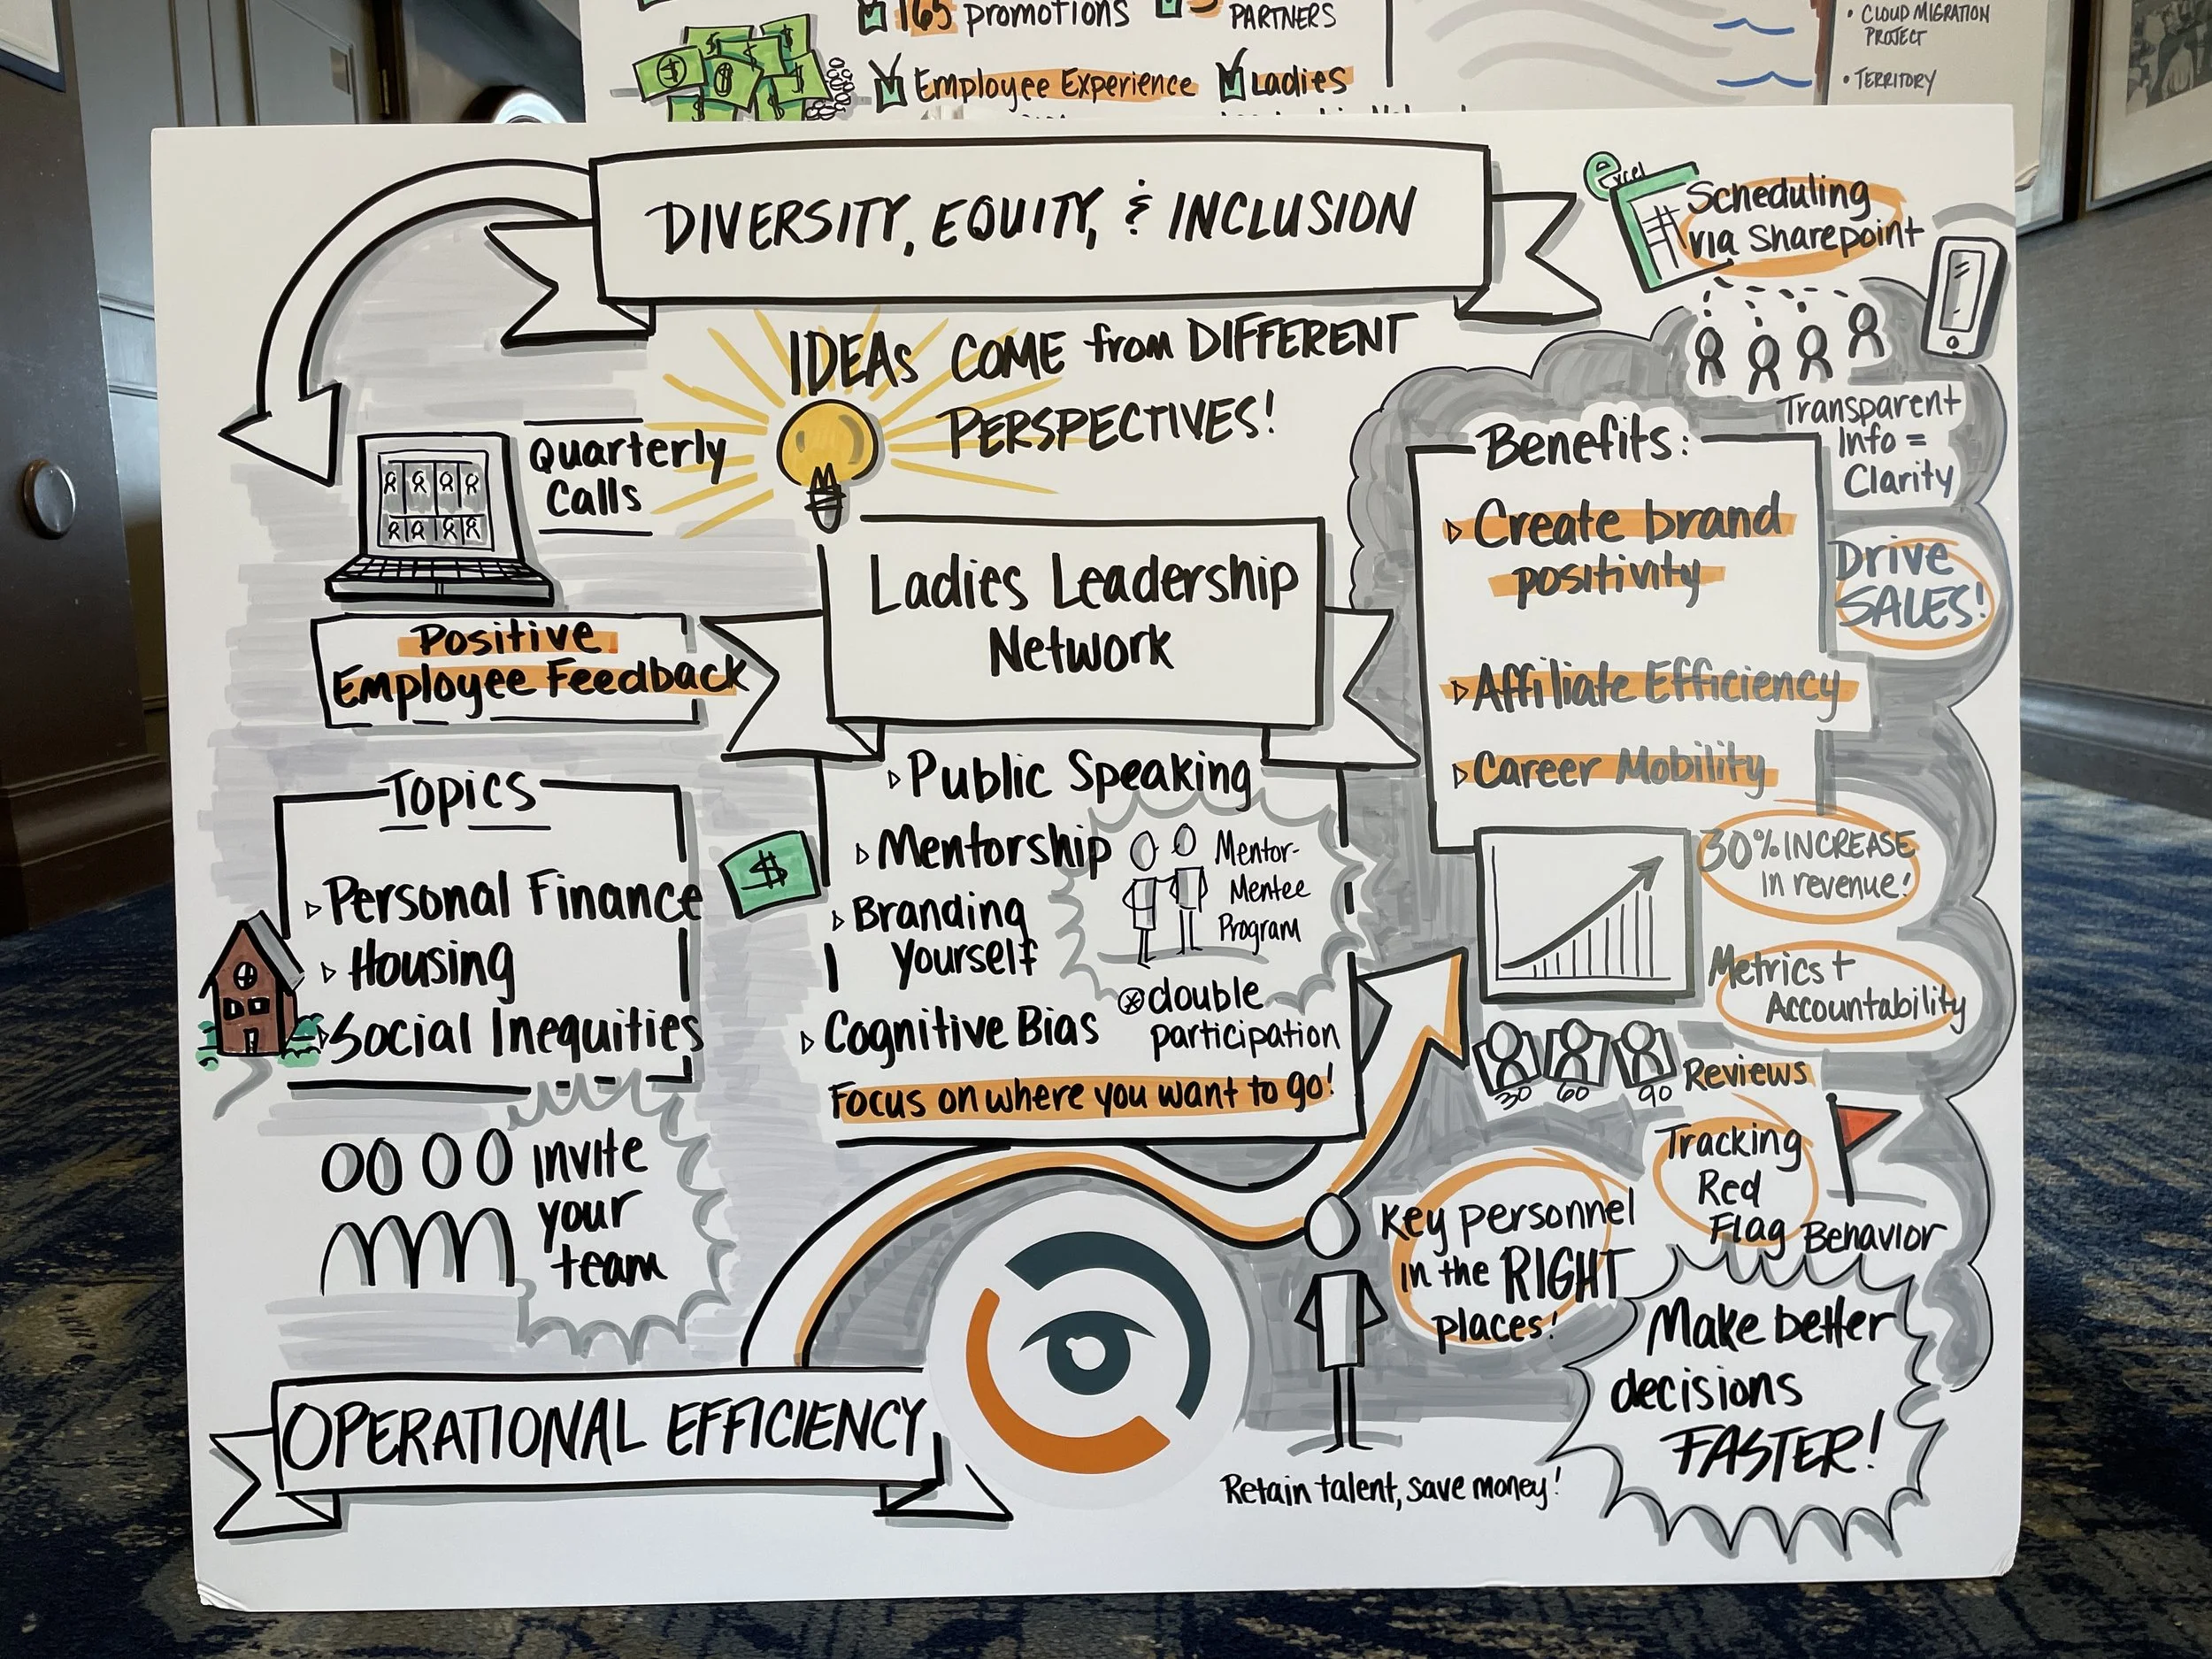 165 promotions
PARTNERS
Employee Experience
Ladies
• CLOUD MIGRATION
PROJECT
• TERRITORY
DIVERSITY, EQUITY, & INCLUSION
IDEAS COME from DIFFERENT
PERSPECTIVES!
Quarterly
Calls
Positive
Employee Feedback
Topics
Personal Finance
Housing
Social Inequities
invite
your
team
$
Ladies Leadership
Network
Public Speaking
Mentorship
Branding
Yourself
Cognitive Bias
Mentor-
Mentee
Program
double
participation
Focus on where you want to go!
excel
Scheduling
via Sharepoint
Transparent
Info =
Clarity
Benefits:
Create brand
positivity
Affiliate Efficiency
Career Mobility
Drive
SALES!
30% INCREASE
in revenue!
Metrics +
Accountability
30 60 90 Reviews
Tracking
Red
Flag Behavior
Key personnel
in the RIGHT
places!
Make better
decisions
FASTER!
Retain talent, save money!
OPERATIONAL EFFICIENCY